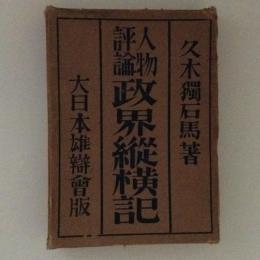 久木獨石馬著
人物評論
政界縱横記
大日本雄辯會版